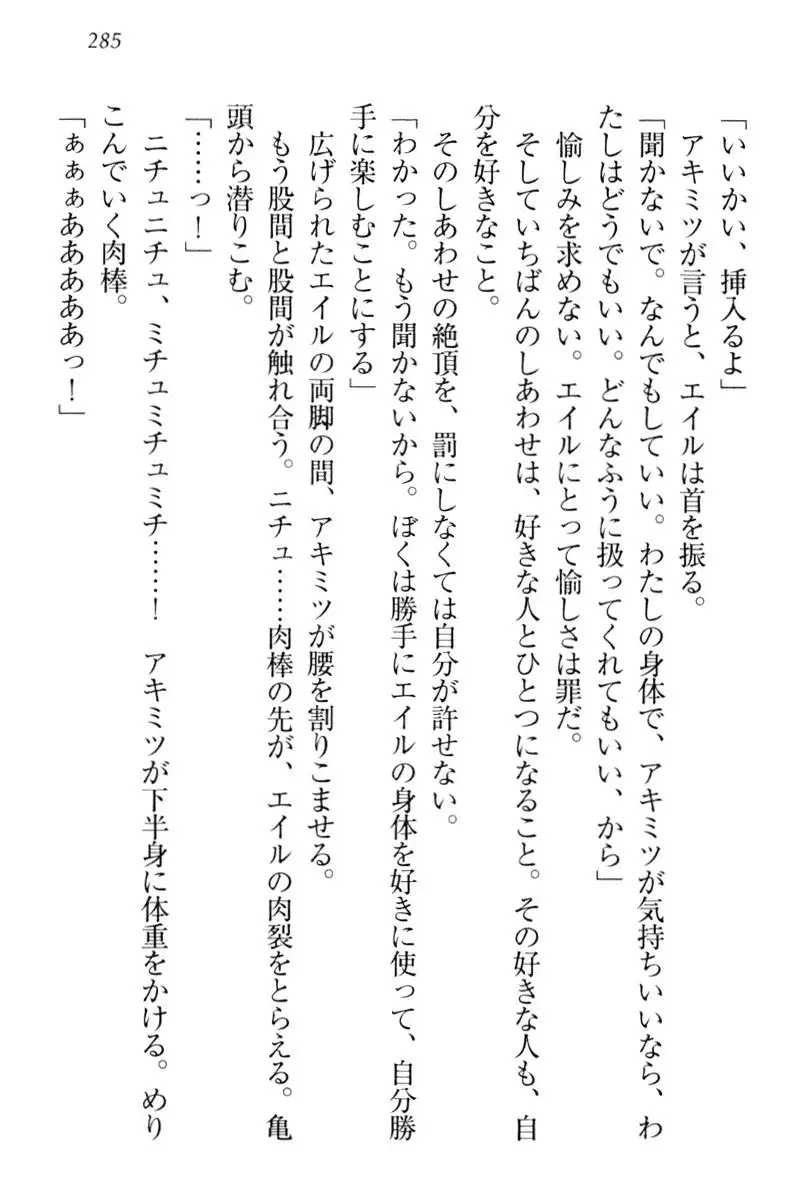 285
「いいかい、挿入るよ」
アキミツが言うと、エイルは首を振る。
「聞かないで。なんでもしていい。わたしの身体で、アキミツが気持ちいいなら、わ
たしはどうでもいい。どんなふうに扱ってくれてもいい、から」
愉しみを求めない。エイルにとって愉しさは罪だ。
そしていちばんのしあわせは、好きな人とひとつになること。その好きな人も、自
分を好きなこと。
そのしあわせの絶頂を、罰にしなくては自分が許せない。
「わかった。もう聞かないから。ぼくは勝手にエイルの身体を好きに使って、自分勝
手に楽しむことにする」
広げられたエイルの両脚の間、アキミツが腰を割りこませる。
もう股間と股間が触れ合う。ニチュ……肉棒の先が、エイルの肉裂をとらえる。亀
頭から潜りこむ。
「……っ！」
ニチュニチュ、ミチュミチュミチ……！　アキミツが下半身に体重をかける。めり
こんでいく肉棒。
「ぁぁぁあああああっ！」